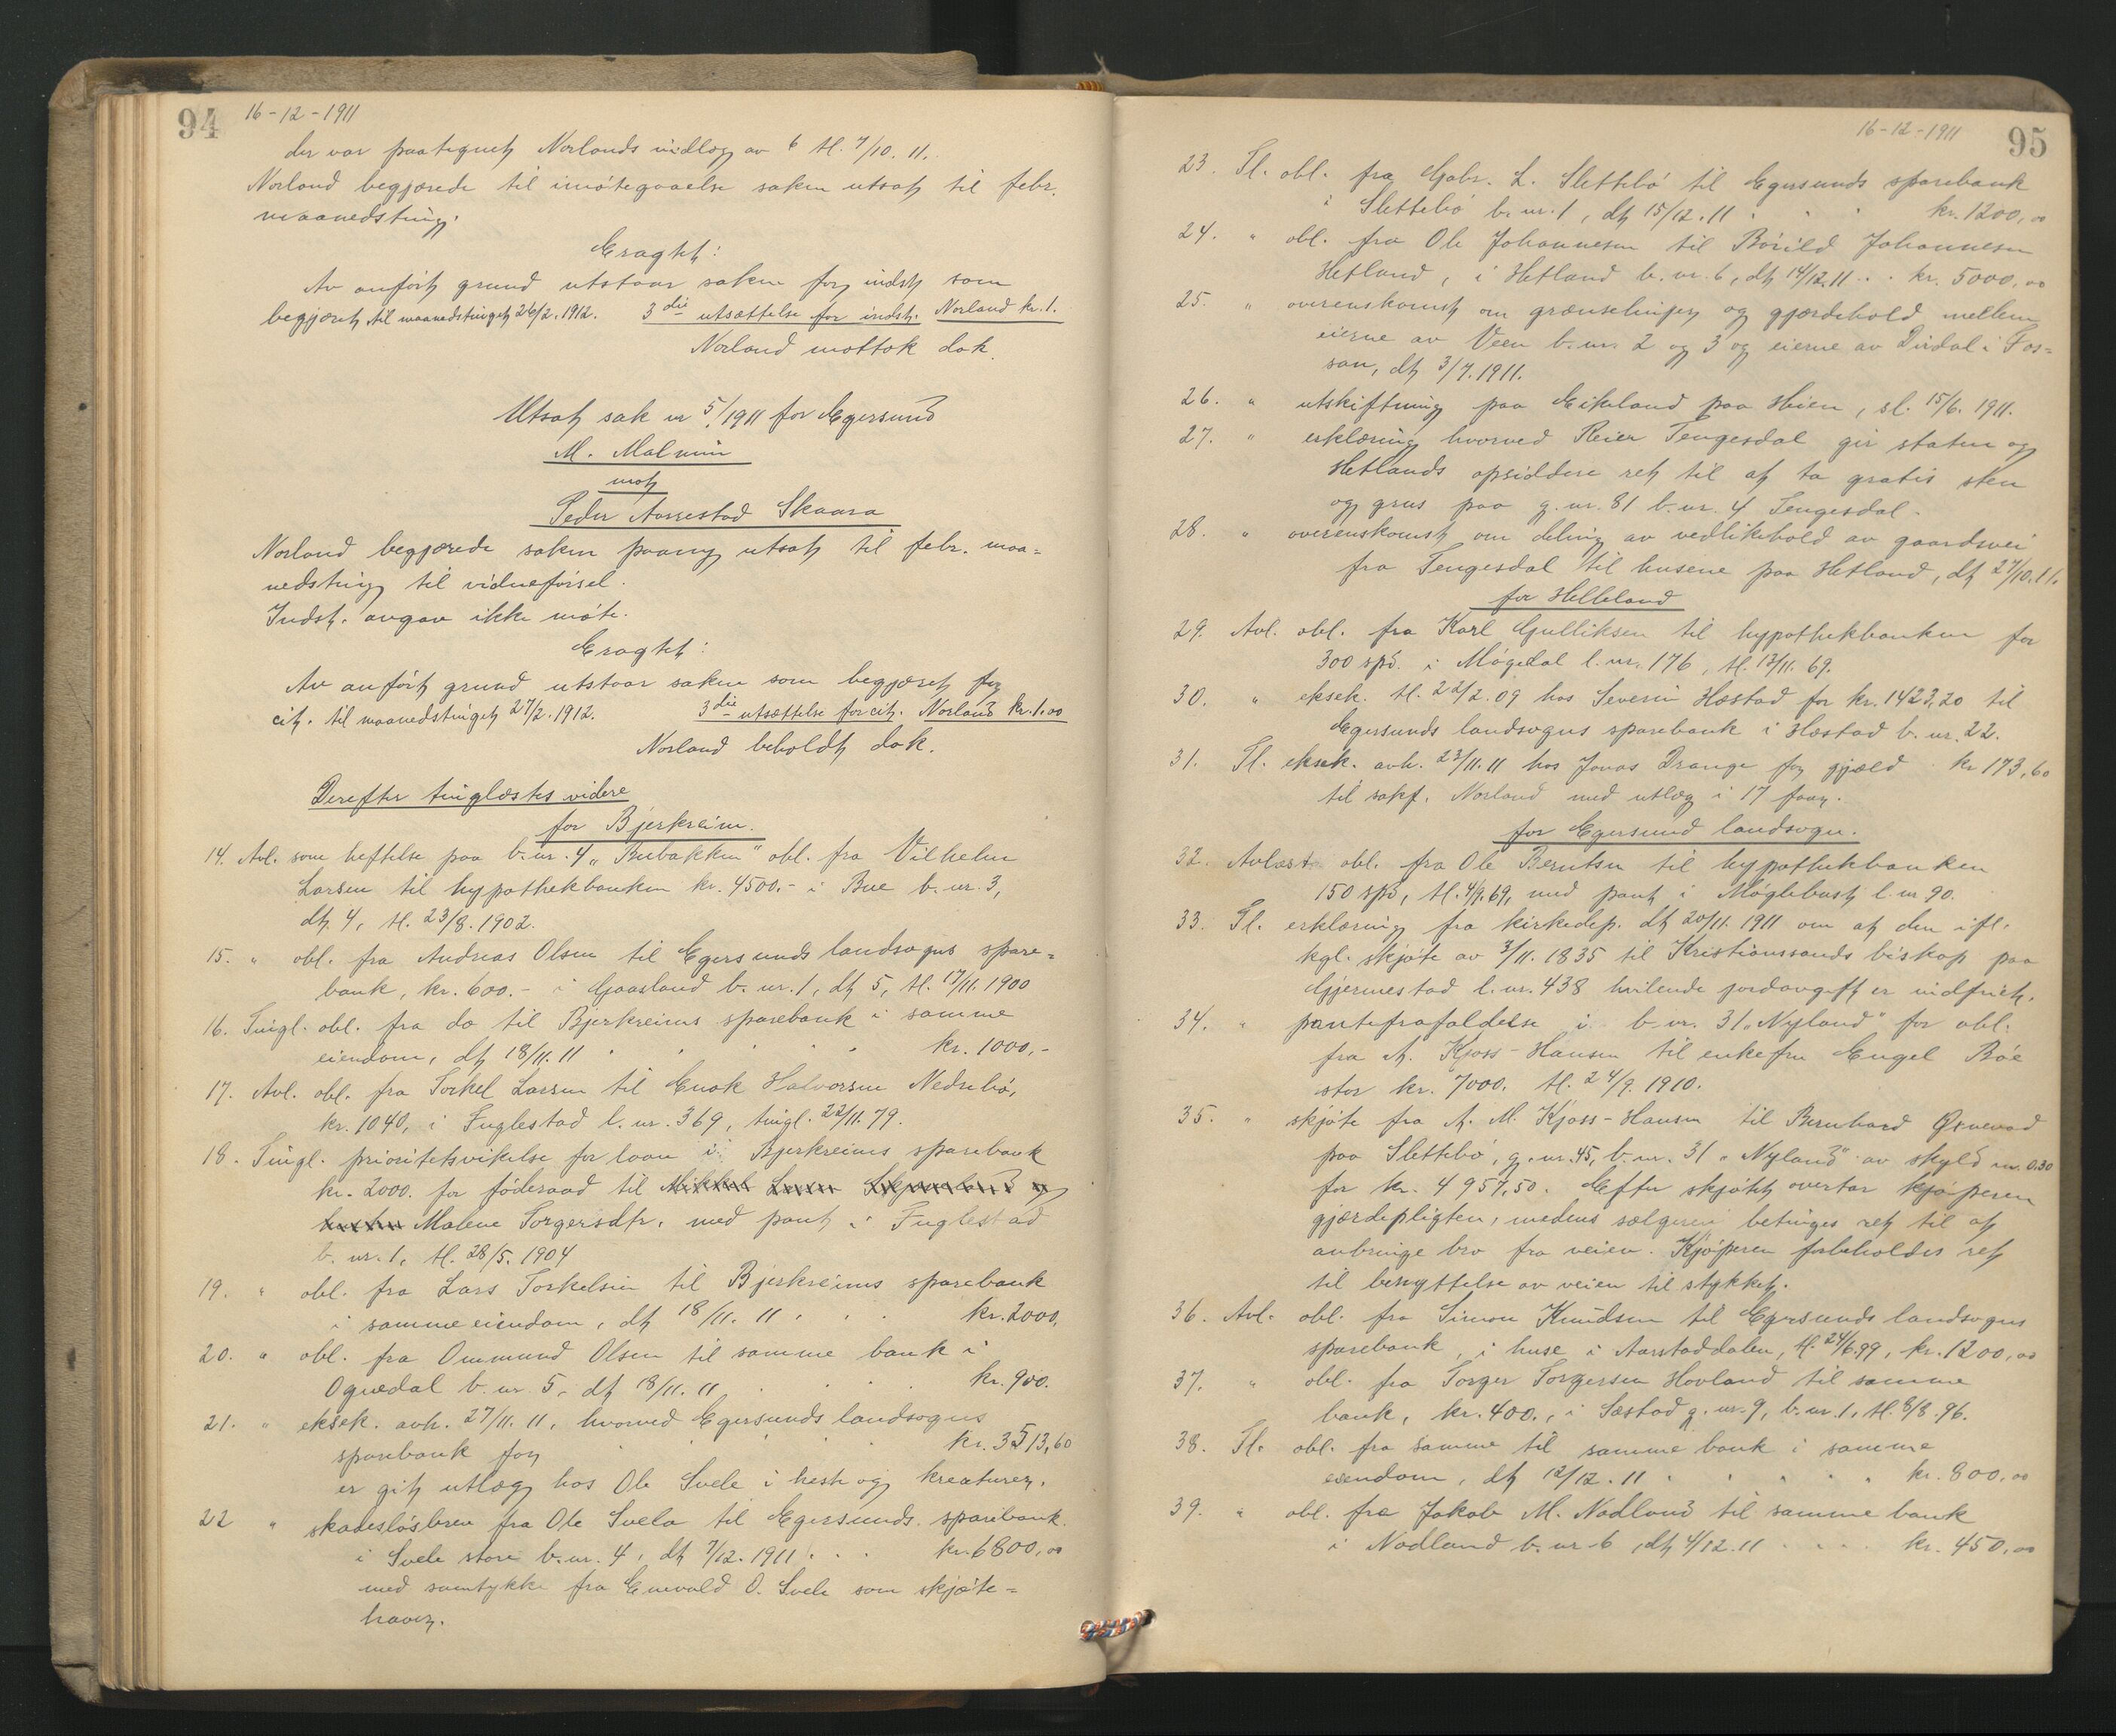 94 16-12-1911
der var paategnet Norlands indlæg av 6 tl. 7/10. 11.
Norland begjærede til imøtegaaelse saken utsat til febr.
maanedsting.
Eragtet:
Av anført grund utstaar saken for indst som
begjæret til maanedstinget 26/2. 1912. 3die utsættelse for indst. Norland kr. 1.
Norland mottok dok.
Utsat sak nr 5/1911 for Egersund
M. Malmin
mot
Peder Aarrestad Skaara
Norland begjærede saken paany utsat til febr. maa=
nedsting til vidneførsel.
Indst. avgav ikke møte.
Eragtet:
Av anført grund utstaar saken som begjæret for
cit. til maanedstinget 27/2. 1912. 3die utsættelse for cit. Norland kr. 1.00
Norland beholdt dok.
Derefter tinglæstes videre
for Bjerkreim.
14. Avl. som heftelse paa b. nr. 4 „Bubakken" obl. fra Vilhelm
Larsen til hypothekbanken kr. 4500.- i Bue b. nr. 3,
dt. 4, tl. 23/8. 1902.
15. " obl. fra Andreas Olsen til Egersunds landsogns spare=
bank, kr. 600.- i Gaasland b. nr. 1, dt 5, tl. 17/11. 1900
16. Tingl. obl. fra do til Bjerkreims sparebank i samme
eiendom, dt 18/11. 11 kr. 1000,-
17. Avl. obl. fra Torkel Larsen til Enok Halvorsen Nedrebø,
kr. 1040, i Fuglestad l. nr. 369, tingl. 22/11. 79.
18. Tingl. prioritetsvikelse for laan i Bjerkreims sparebank
kr. 2000. for føderaad til Mikkel Larsen Skjæveland og
hustru Malene Torgersdtr. med pant i Fuglestad
b. nr. 1, tl. 28/5. 1904
19. " obl. fra Lars Torkelsen til Bjerkreims sparebank
i samme eiendom, dt 18/11. 11 kr. 2000.
20. " obl. fra Ommund Olsen til samme bank i
Ognedal b. nr 5, dt 18/11. 11 kr. 900.
21. " eksek. avh. 27/11. 11, hvorved Egersunds landsogns
sparebank for kr. 3513,60
er git utlæg hos Ole Svele i hest og kreaturer.
22 " skadesløsbrev fra Ole Svela til Egersunds sparebank
i Svele store b. nr. 4, dt 7/12. 1911 kr. 6800,00
med samtykke fra Enevald O. Svele som skjøte=
haver.
16-12-1911 95
23. Tl. obl. fra Gabr. L. Slettebø til Egersunds sparebank
i Slettebø b. nr. 1, dt 15/12. 11 kr. 1200,00
24. " obl. fra Ole Johannesen til Børild Johannesen
Hetland, i Hetland b. nr. 6, dt 14/12. 11 .. kr. 5000,00
25. " overenskomst om grænselinjer og gjærdehold mellem
eierne av Veen b. nr. 2 og 3 og eierne av Dirdal i Fos=
san, dt 3/7. 1911.
26. " utskiftning paa Eikeland paa Heien, sl. 15/6. 1911.
27. " erklæring hvorved Reier Tengesdal gir staten og
Hetlands opsiddere ret til at ta gratis sten
og grus paa g. nr. 81 b. nr. 4 Tengesdal.
28. " overenskomst om deling av vedlikehold av gaardsvei
fra Tengesdal til husene paa Hetland, dt 27/10. 11.
for Helleland
29. Avl. obl. fra Karl Gulliksen til hypothekbanken for
300 spd. i Møgedal l. nr. 176, tl. 13/11. 69.
30. " eksek. tl. 22/2. 09 hos Severin Hæstad for kr. 1423,20 til
Egersunds landsogns sparebank i Hæstad b. nr. 22.
31. Tl. eksek. avh. 23/11. 11 hos Jonas Drange for gjæld kr 173,60
til sakf. Norland med utlæg i 17 faar.
for Egersund landsogn.
32. Avlæst obl. fra Ole Berntsen til hypothekbanken
150 spd, tl. 4/9. 69, med pant i Møglebust l. nr 90.
33. Tl. erklæring fra kirkedep. dt 20/11. 1911 om at den ifl.
kgl. skjøte av 3/11. 1835 til Kristianssands biskop paa
Gjermestad l. nr. 438 hvilende jordavgift er indfriet.
34. " pantefrafaldelse i b. nr. 31 „Nyland" for obl.
fra A. Kjoss-Hansen til enkefru Engel Bøe
stor kr. 7000. tl. 24/9. 1910.
35. " skjøte fra A. M. Kjoss-Hansen til Bernhard Ørnevad
paa Slettebø, g. nr. 45, b. nr. 31 „Nyland" av skyld m. 0.30
for kr. 4957,50. Efter skjøtet overtar kjøperen
gjærdepligten, medens sælgeren betinges ret til at
anbringe bro fra veien. Kjøperen forbeholdes ret
til benyttelse av veien til stykket.
36. Avl. obl. fra Simon Knudsen til Egersunds landsogns
sparebank, i huse i Aarstaddalen, tl. 24/6. 99, kr. 1200,00
37. " obl. fra Torger Torgersen Hovland til samme
bank, kr. 400., i Sæstad g. nr. 9, b. nr. 1, tl. 8/8. 96.
38. Tl. obl. fra samme til samme bank i samme
eiendom, dt 12/12. 11 kr. 800,00
39. " obl. fra Jakob M. Nodland til samme bank
i Nodland b. nr 6, dt 4/12. 11 kr. 450,00